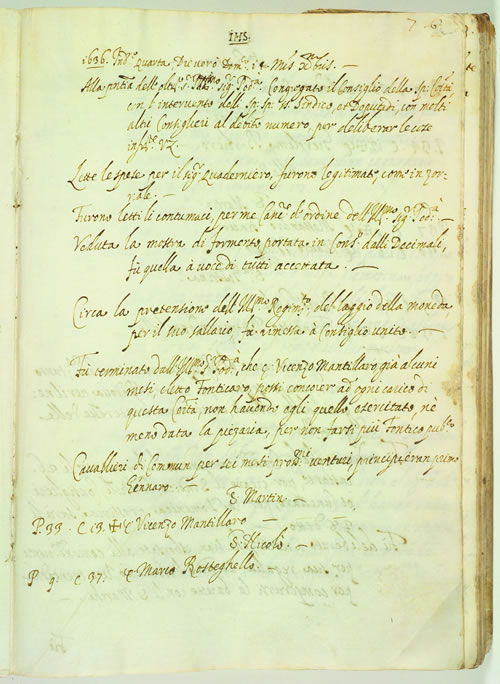 IHS.
1636. Ind.e quarta Die vero Dom.co 14 Mis Xmbris.
Alla pntia dell' Ill.mo S. Pod.a Congregato il Consiglio della Sp. Coità
con l'intervento delli Sp. Sp. SS. Sindico, et Deputadi, con molti
altri Consiglieri al debito numero, per deliberar le cose
infr.te VZ.
Lette le spese per il sig.r Quaderniero, furono legitimate, come in zor-
nale. —
Furono letti li contumaci, per me Canc.e d'ordine dell' Ill.mo sig.r Pod.a —
Veduta la mostra di formento, portata in Cons.o dalli Decimali,
fù quella à voce di tutti accettata. —
Circa la pretensione dell' Ill.mo Regim.to del laggio della moneta
per il suo sallario fù rimessa à Consiglio unito. —
Fù terminato dall' Ill.mo S. Pod.a, che q Vicenzo Mantillaro, già alcuni
mesi eletto Fonticaro, possi concorer ad ogni carico di
questa Coità, non havendo egli quello esercitato, nè
meno data la piezaria, per non farsi più Fontico pub.co
Cavallieri di Commun per sei mesi pross.i venturi, principieran primo
Gennaro —
S. Martin —
P. 33. C 13. ✠ q Vicenzo Mantillaro —
S. Nicolò. —
P 9. C 37. q Marco Rosteghello.